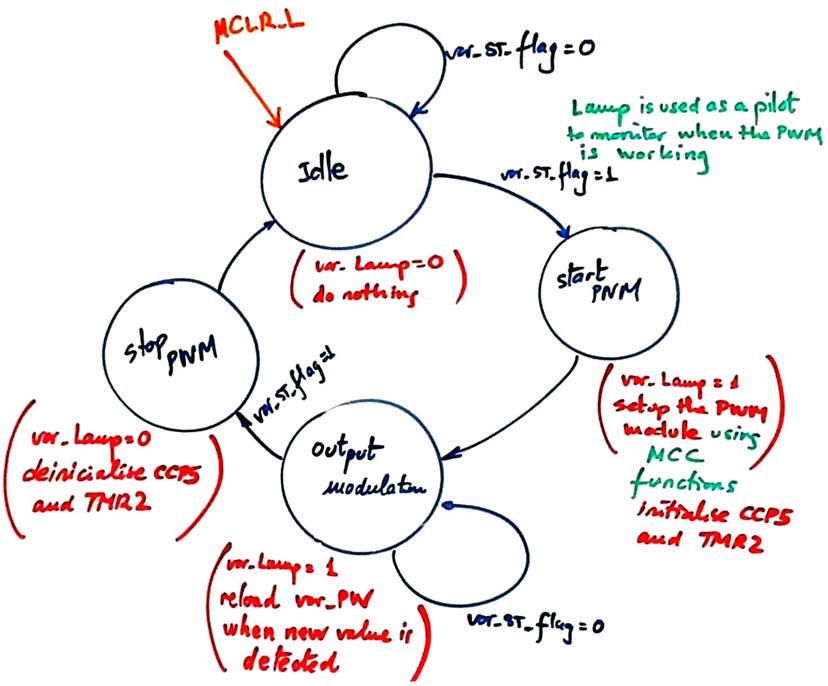 MCLR_L
var_ST_flag=0
Lamp is used as a pilot
to monitor when the PWM
is working
Idle
var_ST_flag=1
(var_Lamp=0
do nothing)
start
PWM
stop
PWM
var_ST_flag=1
(var_Lamp=1
setup the PWM
module using
MCC
functions
initialise CCP5
and TMR2)
(var_Lamp=0
deinicialise CCP5
and TMR2)
output
modulation
(var_Lamp=1
reload var_PW
when new value is
detected)
var_ST_flag=0